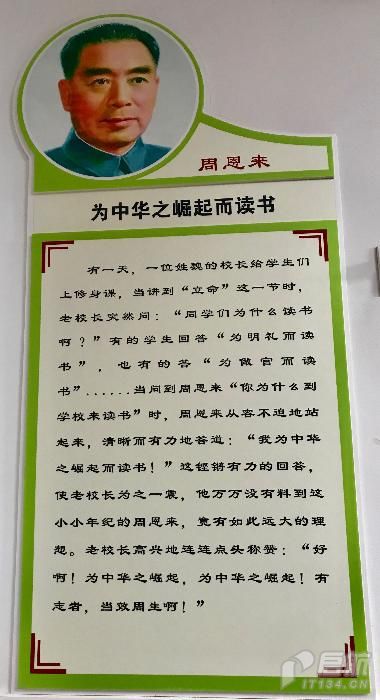 周恩来
为中华之崛起而读书
有一天，一位姓魏的校长给学生们
上修身课，当讲到“立命”这一节时，
老校长突然问：“同学们为什么读书
啊？”有的学生回答“为明礼而读
书”，也有的答“为做官而读
书”......当问到周恩来“你为什么到
学校来读书”时，周恩来从容不迫地站
起来，清晰而有力地答道：“我为中华
之崛起而读书！”这铿锵有力的回答，
使老校长为之一震，他万万没有料到这
小小年纪的周恩来，竟有如此远大的理
想。老校长高兴地连连点头称赞：“好
啊！为中华之崛起，为中华之崛起！有
志者，当效周生啊！”
IT134.CN